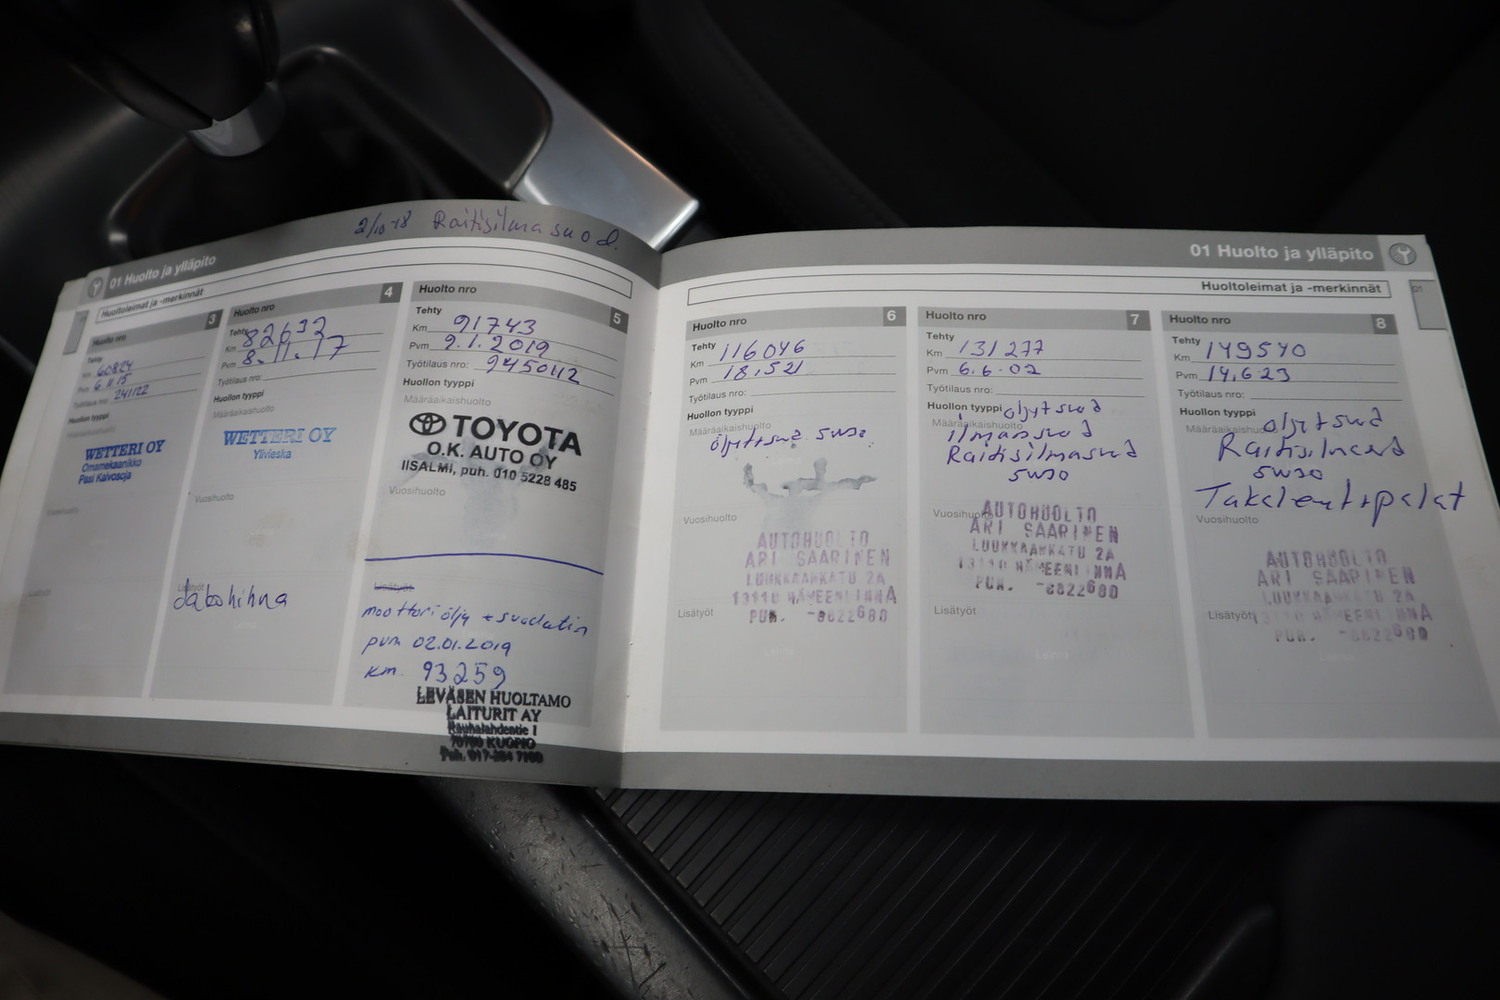 2/10-18 Raitisilmasuod.
01 Huolto ja ylläpito
Huoltoleimat ja -merkinnät
Huolto nro 3
Tehty
Km 60824
Pvm 6.11.15
Työtilaus nro: 241122
Huollon tyyppi
Määräaikaishuolto
WETTERI OY
Omamekaanikko
Pasi Kaivosoja
Vuosihuolto
Lisätyöt
Huolto nro 4
Tehty
Km 82632
Pvm 8.11.17
Työtilaus nro:
Huollon tyyppi
Määräaikaishuolto
WETTERI OY
Ylivieska
Vuosihuolto
Lisätyöt
Huolto nro 5
Tehty
Km 91743
Pvm 9.1.2019
Työtilaus nro: 945042
Huollon tyyppi
TOYOTA
O.K. AUTO OY
IISALMI, puh. 010 5228 485
Vuosihuolto
Lisätyöt
moottori öljy + suodatin
pvm 02.01.2019
km. 93259
LEVÄSEN HUOLTAMO
LAITURIT AY
Rauhalahdentie 1
70780 KUOPIO
Puh. 017-264 7100
01 Huolto ja ylläpito
Huoltoleimat ja -merkinnät
01
Huolto nro 6
Tehty
Km 116046
Pvm 18.521
Työtilaus nro:
Huollon tyyppi
Määräaikaishuolto
öljyt+suod. 5w30
Vuosihuolto
AUTOHUOLTO
ARI SAARINEN
LUUKKAANKATU 2A
13110 HÄMEENLINNA
PUH. -6822680
Lisätyöt
Huolto nro 7
Tehty
Km 131277
Pvm 6.6-02
Työtilaus nro:
Huollon tyyppi öljyt suod
Määräaikaishuolto
ilmansuod
Raitisilmasuod
5w30
Vuosihuolto
AUTOHUOLTO
ARI SAARINEN
LUUKKAANKATU 2A
13110 HÄMEENLINNA
PUH. -6822680
Lisätyöt
Huolto nro 8
Tehty
Km 149540
Pvm 14.6.23
Työtilaus nro:
Huollon tyyppi
Määräaikaishuolto öljyt suod
5w30
Vuosihuolto
AUTOHUOLTO
ARI SAARINEN
LUUKKAANKATU 2A
13110 HÄMEENLINNA
PUH. -6822680
Lisätyöt